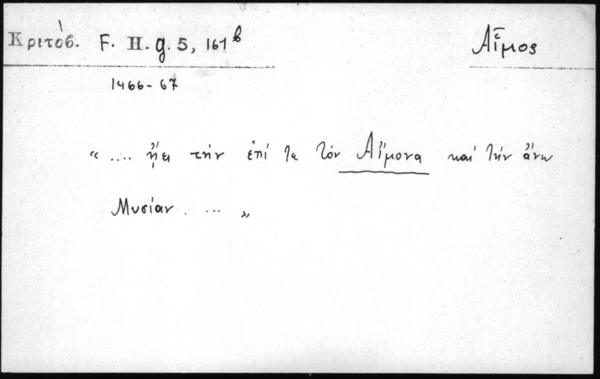 Κριτόβ. F. H. g. 5, 161 b
Αἷμος
1466-67
« .... ᾔει τὴν ἐπί τε τὸν Αἵμονα καὶ τὴν ἄνω
Μυσίαν . ... »